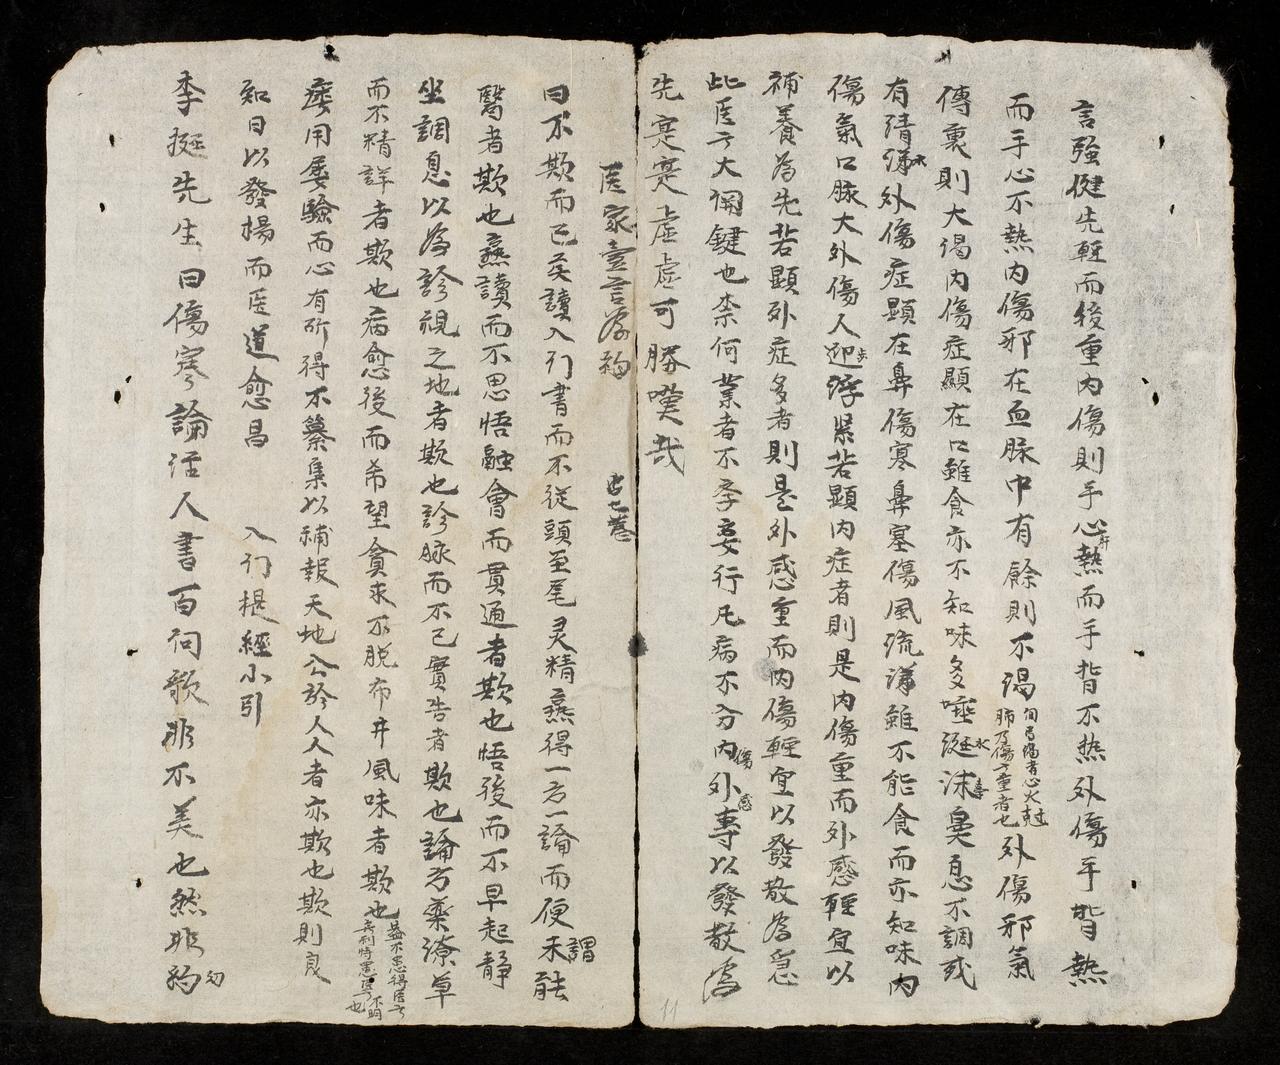 言強健先輕而後重內傷則手心熱而手背不热外傷手背熱
而手心不熱內傷邪在血脉中有餘則不渴外傷邪氣
傳裏則大渴內傷症顯在口雖食亦不知味多唾涎沫鼻息不調或
有清涕外傷症顯在鼻傷寒鼻塞傷風流涕雖不能食而亦知味內
傷氣口脉大外傷人迎浮紧若顯內症者則是內傷重而外感輕宜以
補養為先若顯外症多者則是外感重而內傷輕宜以發散為急
此医方大関鍵也柰何業者不孝妄行凡病不分內傷外感專以發散為
先寔寔虛虛可勝嘆哉
医家壹言為約
曰不欺而已矣讀入门書而不從頭至尾灵精熹得一方一論而便未能謂
醫者欺也熹讀而不思悟融會而貫通者欺也悟後而不早起静
坐調息以為診視之地者欺也診脉而不已實告者欺也論方藥潦草
而不精詳者欺也病愈後而希望貪求不脱布井風味者欺也
屡用屡驗而心有所得不纂集以補報天地公於人人者亦欺也欺則良
知日以發揚而医道愈昌
入门提經小引
李挻先生曰傷寒論活人書百问歌非不美也然非約